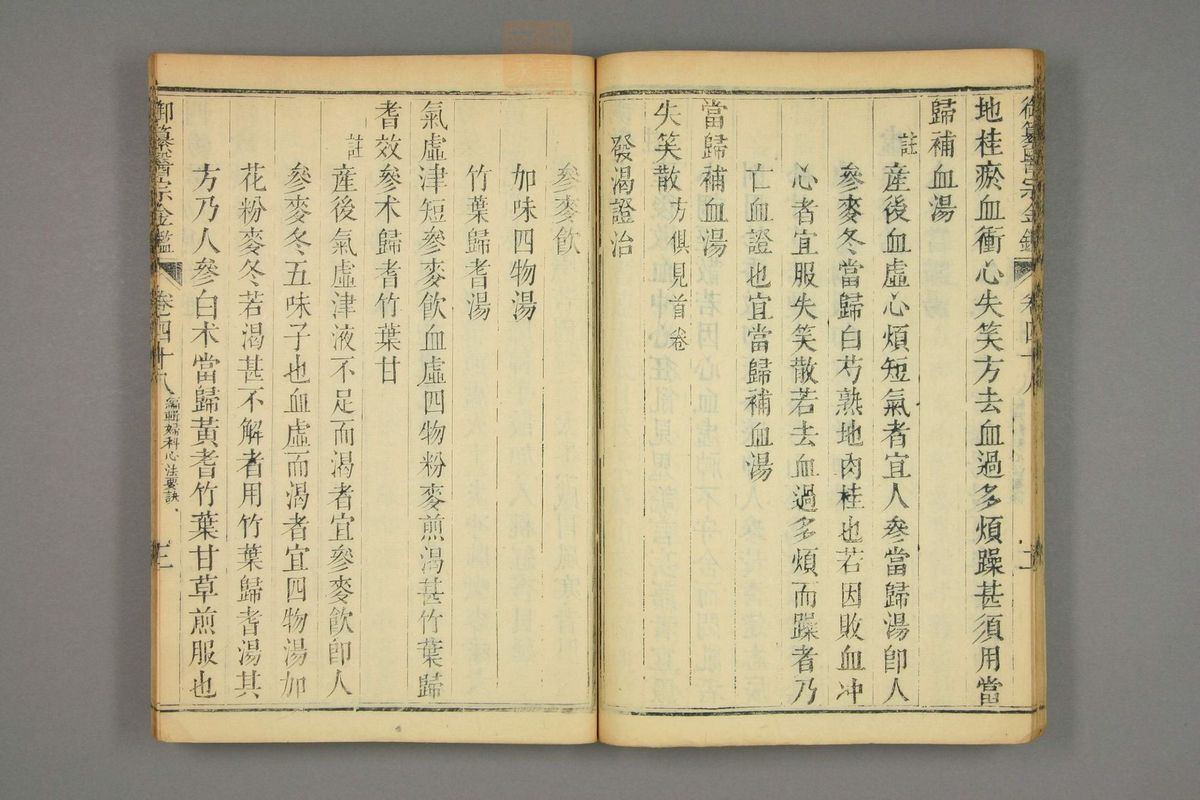 御纂醫宗金鑑 卷四十八 二
地桂瘀血衝心失笑方去血過多煩躁甚須用當
歸補血湯
註 産後血虛心煩短氣者宜人參當歸湯卽人
參麥冬當歸白芍熟地肉桂也若因敗血冲
心者宜服失笑散若去血過多煩而躁者乃
亡血證也宜當歸補血湯
當歸補血湯
失笑散 方俱見首卷
發渴證治
參麥飮
加味四物湯
竹葉歸耆湯
氣虛津短參麥飮血虛四物粉麥煎渴甚竹葉歸
耆效參术歸耆竹葉甘
註 産後氣虛津液不足而渴者宜參麥飮卽人
參麥冬五味子也血虛而渴者宜四物湯加
花粉麥冬若渴甚不解者用竹葉歸耆湯其
方乃人參白术當歸黃耆竹葉甘草煎服也
御纂醫宗金鑑 卷四十八 編輯婦科心法要訣 三